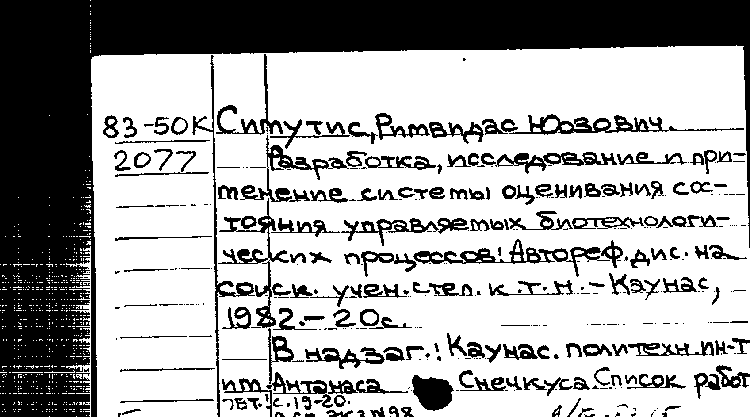 83-50К Симутис, Римвидас Юозович.
2077 Разработка, исследование и при-
менение системы оценивания сос-
тояния управляемых биотехнологи-
ческих процессов: Автореф. дис. на
соиск. учен. степ. к. т. н. - Каунас,
1982. - 20с.
В надзаг.: Каунас. политехн. ин-т
им. Антанаса Снечкуса. Список работ
с. 19-20.